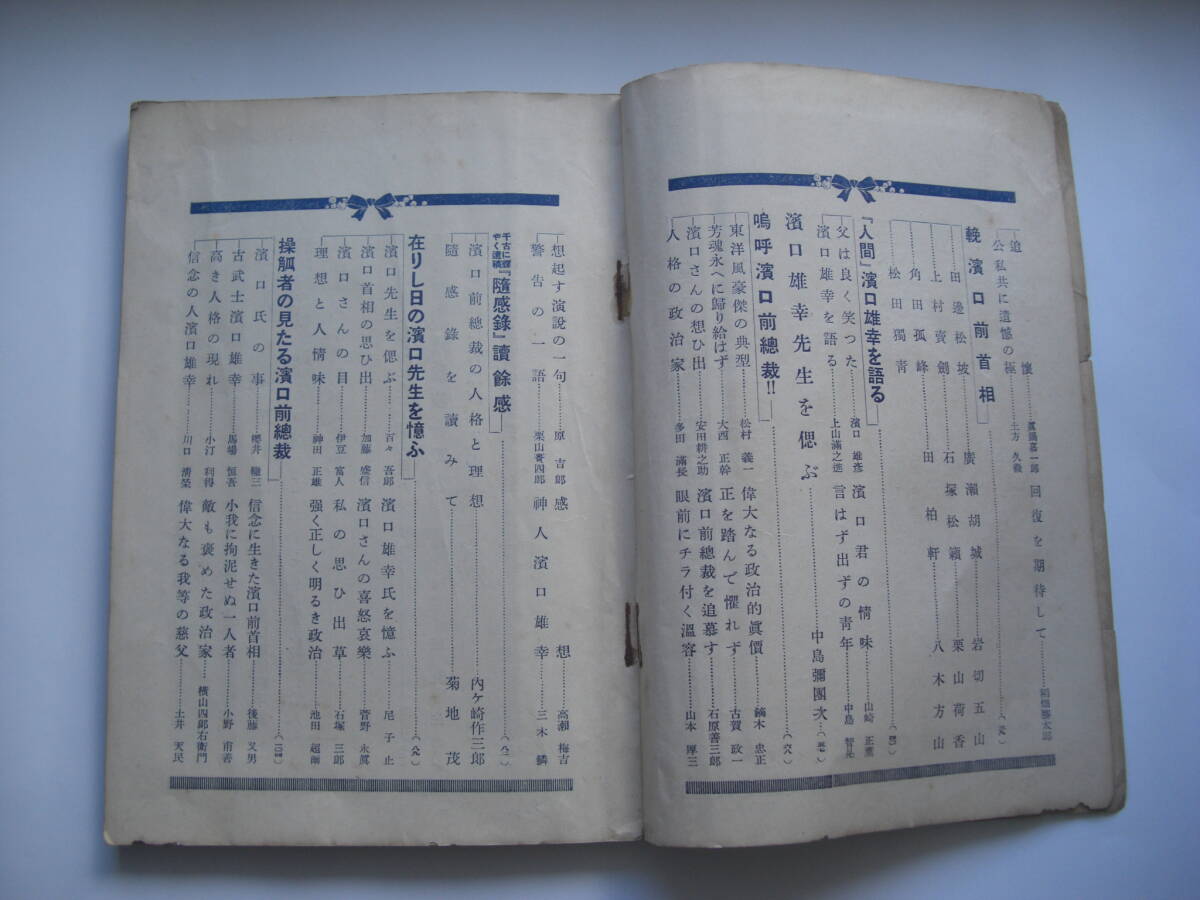 追懷
眞鍋嘉一郎
回復を期待して
公私共に遺憾の極
土方久徵
輓濱口前首相
田邊松坡
廣瀬胡城
岩切五山
上村賣劍
石塚松籟
栗山荷香
角田孤峰
田柏軒
八木方山
松田獨靑
「人間」濱口雄幸を語る
父は良く笑つた
濱口雄彦
濱口君の情味
山崎正董
濱口雄幸を語る
上山滿之進
言はず出ずの靑年
中島
濱口雄幸先生を偲ぶ
中島彌團次
嗚呼濱口前總裁!!
東洋風豪傑の典型
松村義一
偉大なる政治的眞價
鏑木忠正
芳魂永へに歸り給はず
大西正幹
正を踏んで懼れず
古賀政一
濱口さんの想ひ出
安田耕之助
濱口前總裁を追慕す
石原善三郎
人格の政治家
多田滿長
眼前にチラ付く溫容
山本厚三
想起す演說の一句
原吉郎
感想
高瀬梅吉
警告の一語
栗山賚四郎
神人濱口雄幸
三木
『隨感錄』讀餘感
濱口前總裁の人格と理想
內ケ崎作三郎
隨感錄を讀みて
菊地茂
在りし日の濱口先生を憶ふ
濱口先生を偲ぶ
百々吾郎
濱口雄幸氏を憶ふ
尼子止
濱口首相の思ひ出
加藤盛信
濱口さんの喜怒哀樂
菅野永眞
濱口さんの目
伊豆富人
私の思ひ出草
石塚三郎
理想と人情味
神田正雄
强く正しく明るき政治
池田超爾
操觚者の見たる濱口前總裁
濱口氏の事
櫻井轍三
信念に生きた濱口前首相
後藤又男
古武士濱口雄幸
馬場恒吾
小我に拘泥せぬ一人者
小野甫善
高き人格の現れ
小汀利得
敵も褒めた政治家
橫山四郎右衛門
信念の人濱口雄幸
川口淸榮
偉大なる我等の慈父
土井天民